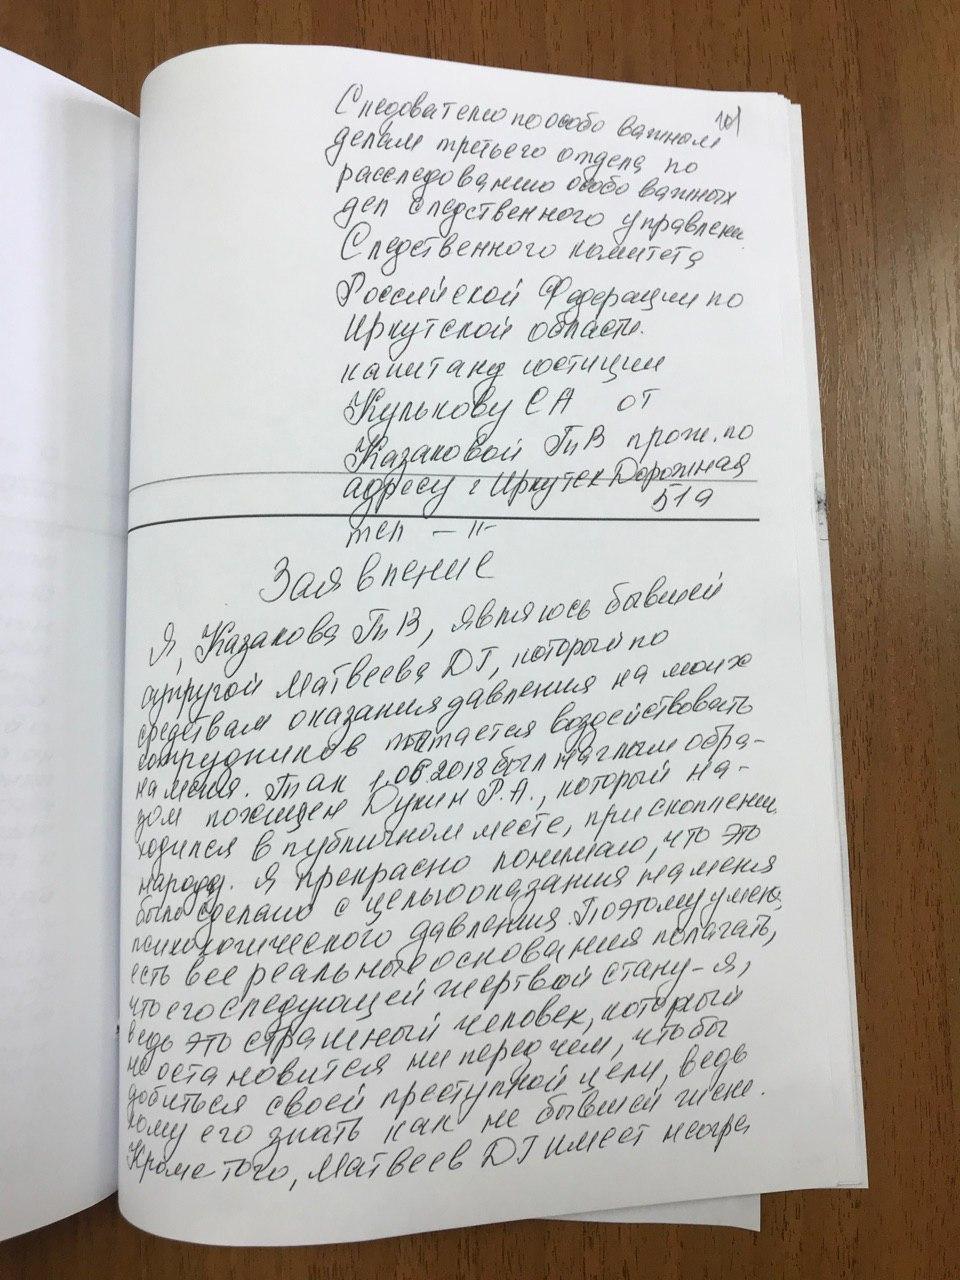 101
Следователю по особо важным
делам третьего отдела по
расследованию особо важных
дел следственного управлени
Следственного комитета
Российской Федерации по
Иркутской области.
капитану юстиции
Кулькову СА от
Казаковой Т.В прож. по
адресу г Иркутск Дорожная
51а
тел – II-
Заявление
Я, Казакова Т.В, являюсь бывшей
супругой Матвеева ДГ, который по
средствам оказания давления на моих
сотрудников пытается воздействовать
на меня. Так 1.06 2018 был наглым обра-
зом похищен Дукин Р.А., который на-
ходился в публичном месте, при скоплении
народа. Я прекрасно понимаю, что это
было сделано с целью оказания на меня
психологического давления. Поэтому у меня
есть все реальные основания полагать,
что его следующей жертвой стану-я,
ведь это страшный человек, который
не остановится ни перед чем, чтобы
добиться своей преступной цели, ведь
кому его знать как не бывшей жене.
Кроме того, Матвеев ДГ имеет неогра